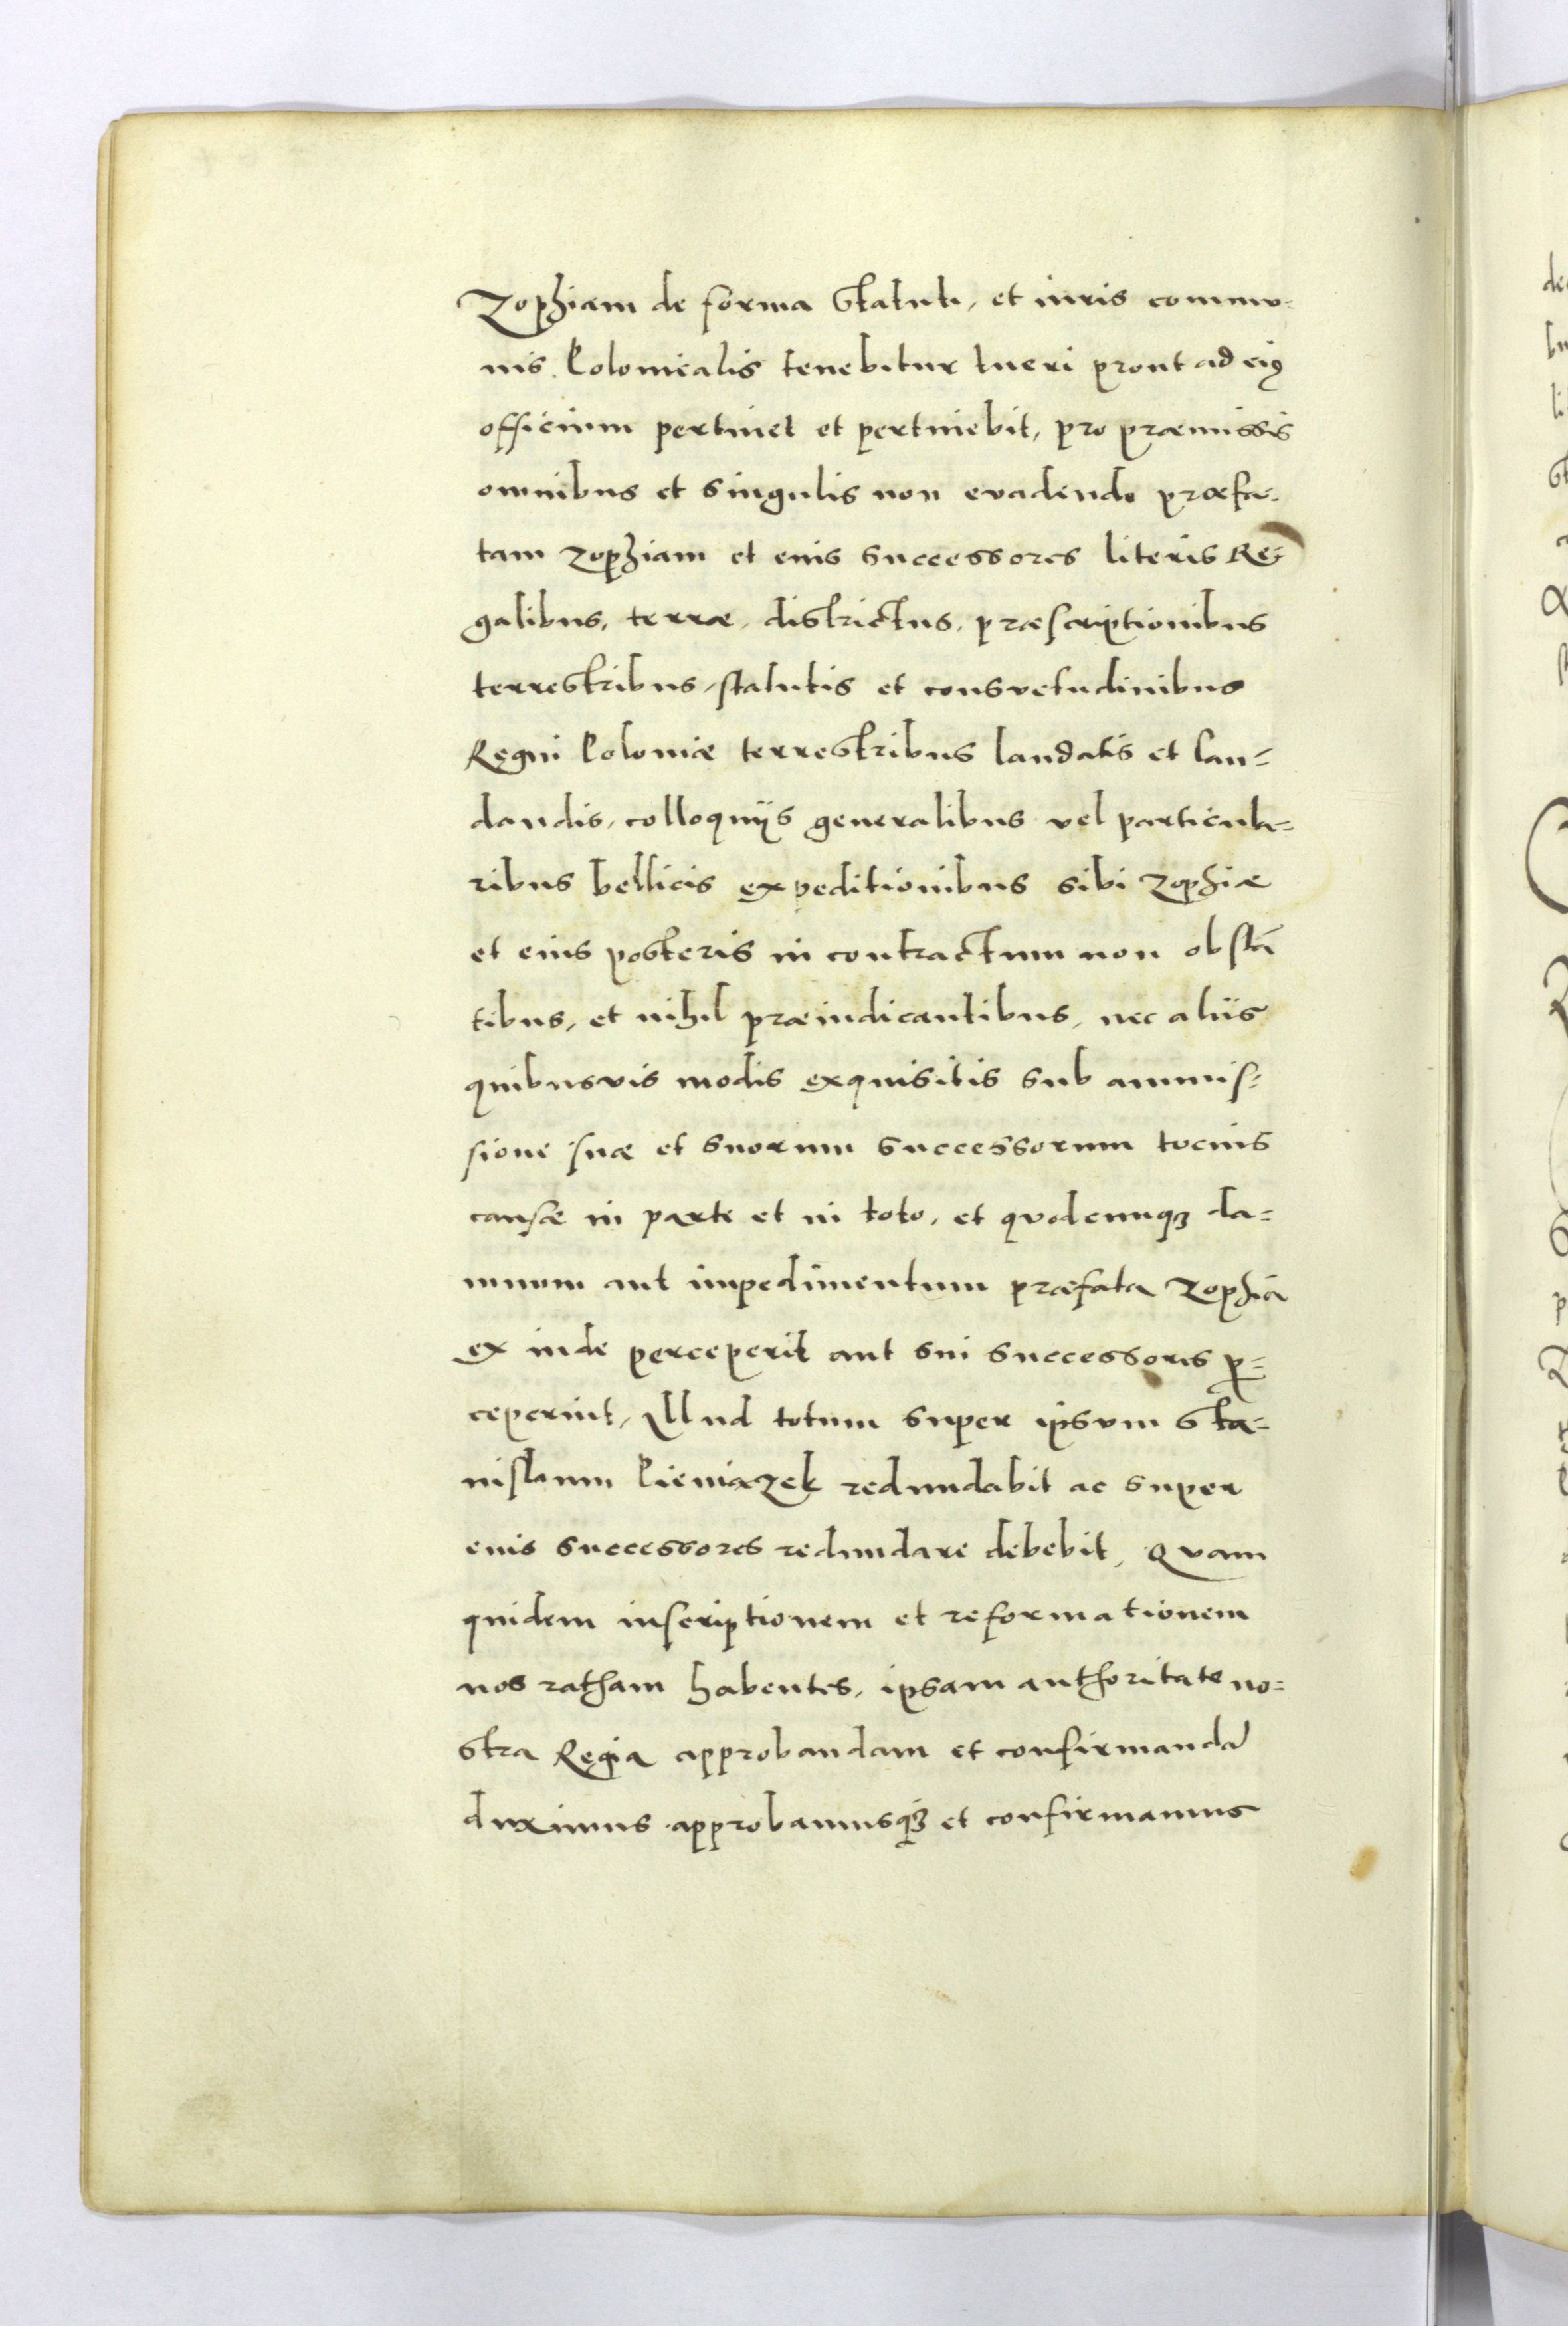 Zophiam de forma Statuti, et iuris commu-
nis Polonicalis tenebitur tueri prout ad eiꝰ
officium pertinet et pertinebit, pro præmissis
omnibus et singulis non evadendo præfa-
tam Zophiam et eius successores literis Re-
galibus, terræ, districtus, præscriptionibus
terrestribus, statutis et consvetudinibus
Regni Poloniæ terrestribus laudatis et lau-
dandis, colloquijs generalibus vel particula-
ribus bellicis expeditionibus sibi Zophiæ
et eius posteris in contractum non obstā
tibus, et nihil præiudicantibus, nec aliis
quibusvis modis exquisitis sub ammis-
sione suæ et suorum successorum tocius
causæ in parte et in toto, et quodcunqꝫ da-
mnum aut impedimentum præfata Zophia
ex inde perceperit aut sui successoris ꝑ-
ceperint, Illud totum super ipsum Sta-
nislaum Pieniązek redundabit ac super
eius successores redundare debebit, Quam
quidem inscriptionem et reformationem
nos ratham habentes, ipsam authoritate no-
stra Regia approbandam et confirmandā
duximus approbamusqꝫ et confirmamus